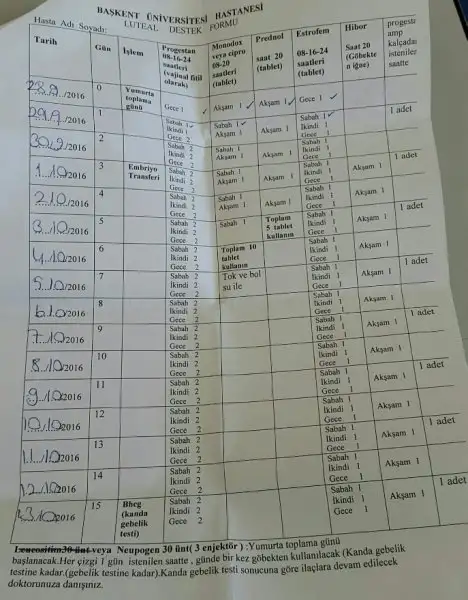 BAŞKENT ÜNİVERSİTESİ HASTANESİ
LUTEAL DESTEK FORMU
Hasta Adı Soyadı:
Tarih Gün İşlem Progestan 08-16-24 saatleri (vajinal fitil olarak) Monodox veya cipro 08-20 saatleri (tablet) Prednol saat 20 (tablet) Estrofem 08-16-24 saatleri (tablet) Hibor Saat 20 (Göbekten iğne) progesti amp kalçadan istenilen saatte
28.9./2016 0 Yumurta toplama günü Gece 1 ✓ Akşam 1 ✓ Akşam 1 ✓ Gece 1 ✓
29.9./2016 1 Sabah 1 İkindi 1 Gece 2 Sabah 1 ✓ Akşam 1 Akşam 1 Sabah 1 ✓ İkindi 1 Gece 1 1 adet
30.9/2016 2 Sabah 2 İkindi 2 Gece 2 Sabah 1 Akşam 1 Akşam 1 Sabah 1 İkindi 1 Gece 1
1.10/2016 3 Embriyo Transferi Sabah 2 İkindi 2 Gece 2 Sabah 1 Akşam 1 Akşam 1 Sabah 1 İkindi 1 Gece 1 Akşam 1 1 adet
2.10./2016 4 Sabah 2 İkindi 2 Gece 2 Sabah 1 Akşam 1 Akşam 1 Sabah 1 İkindi 1 Gece 1 Akşam 1
3.10/2016 5 Sabah 2 İkindi 2 Gece 2 Sabah 1 Toplam 5 tablet kullanım Sabah 1 İkindi 1 Gece 1 Akşam 1 1 adet
4.10/2016 6 Sabah 2 İkindi 2 Gece 2 Toplam 10 tablet kullanım Sabah 1 İkindi 1 Gece 1 Akşam 1
5.10/2016 7 Sabah 2 İkindi 2 Gece 2 Tok ve bol su ile Sabah 1 İkindi 1 Gece 1 Akşam 1 1 adet
6.10/2016 8 Sabah 2 İkindi 2 Gece 2 Sabah 1 İkindi 1 Gece 1 Akşam 1
7.10/2016 9 Sabah 2 İkindi 2 Gece 2 Sabah 1 İkindi 1 Gece 1 Akşam 1 1 adet
8.10/2016 10 Sabah 2 İkindi 2 Gece 2 Sabah 1 İkindi 1 Gece 1 Akşam 1
9.10/2016 11 Sabah 2 İkindi 2 Gece 2 Sabah 1 İkindi 1 Gece 1 Akşam 1 1 adet
10.10/2016 12 Sabah 2 İkindi 2 Gece 2 Sabah 1 İkindi 1 Gece 1 Akşam 1
11.10/2016 13 Sabah 2 İkindi 2 Gece 2 Sabah 1 İkindi 1 Gece 1 Akşam 1 1 adet
12.10/2016 14 Sabah 2 İkindi 2 Gece 2 Sabah 1 İkindi 1 Gece 1 Akşam 1
13.10/2016 15 Bhcg (kanda gebelik testi) Sabah 2 İkindi 2 Gece 2 Sabah 1 İkindi 1 Gece 1 Akşam 1 1 adet
Leucositim30 ünt veya Neupogen 30 ünt( 3 enjektör ) :Yumurta toplama günü
başlanacak.Her çizgi 1 gün istenilen saatte , günde bir kez göbekten kullanılacak (Kanda gebelik
testine kadar.(gebelik testine kadar).Kanda gebelik testi sonucuna göre ilaçlara devam edilecek
doktorunuza danışınız.